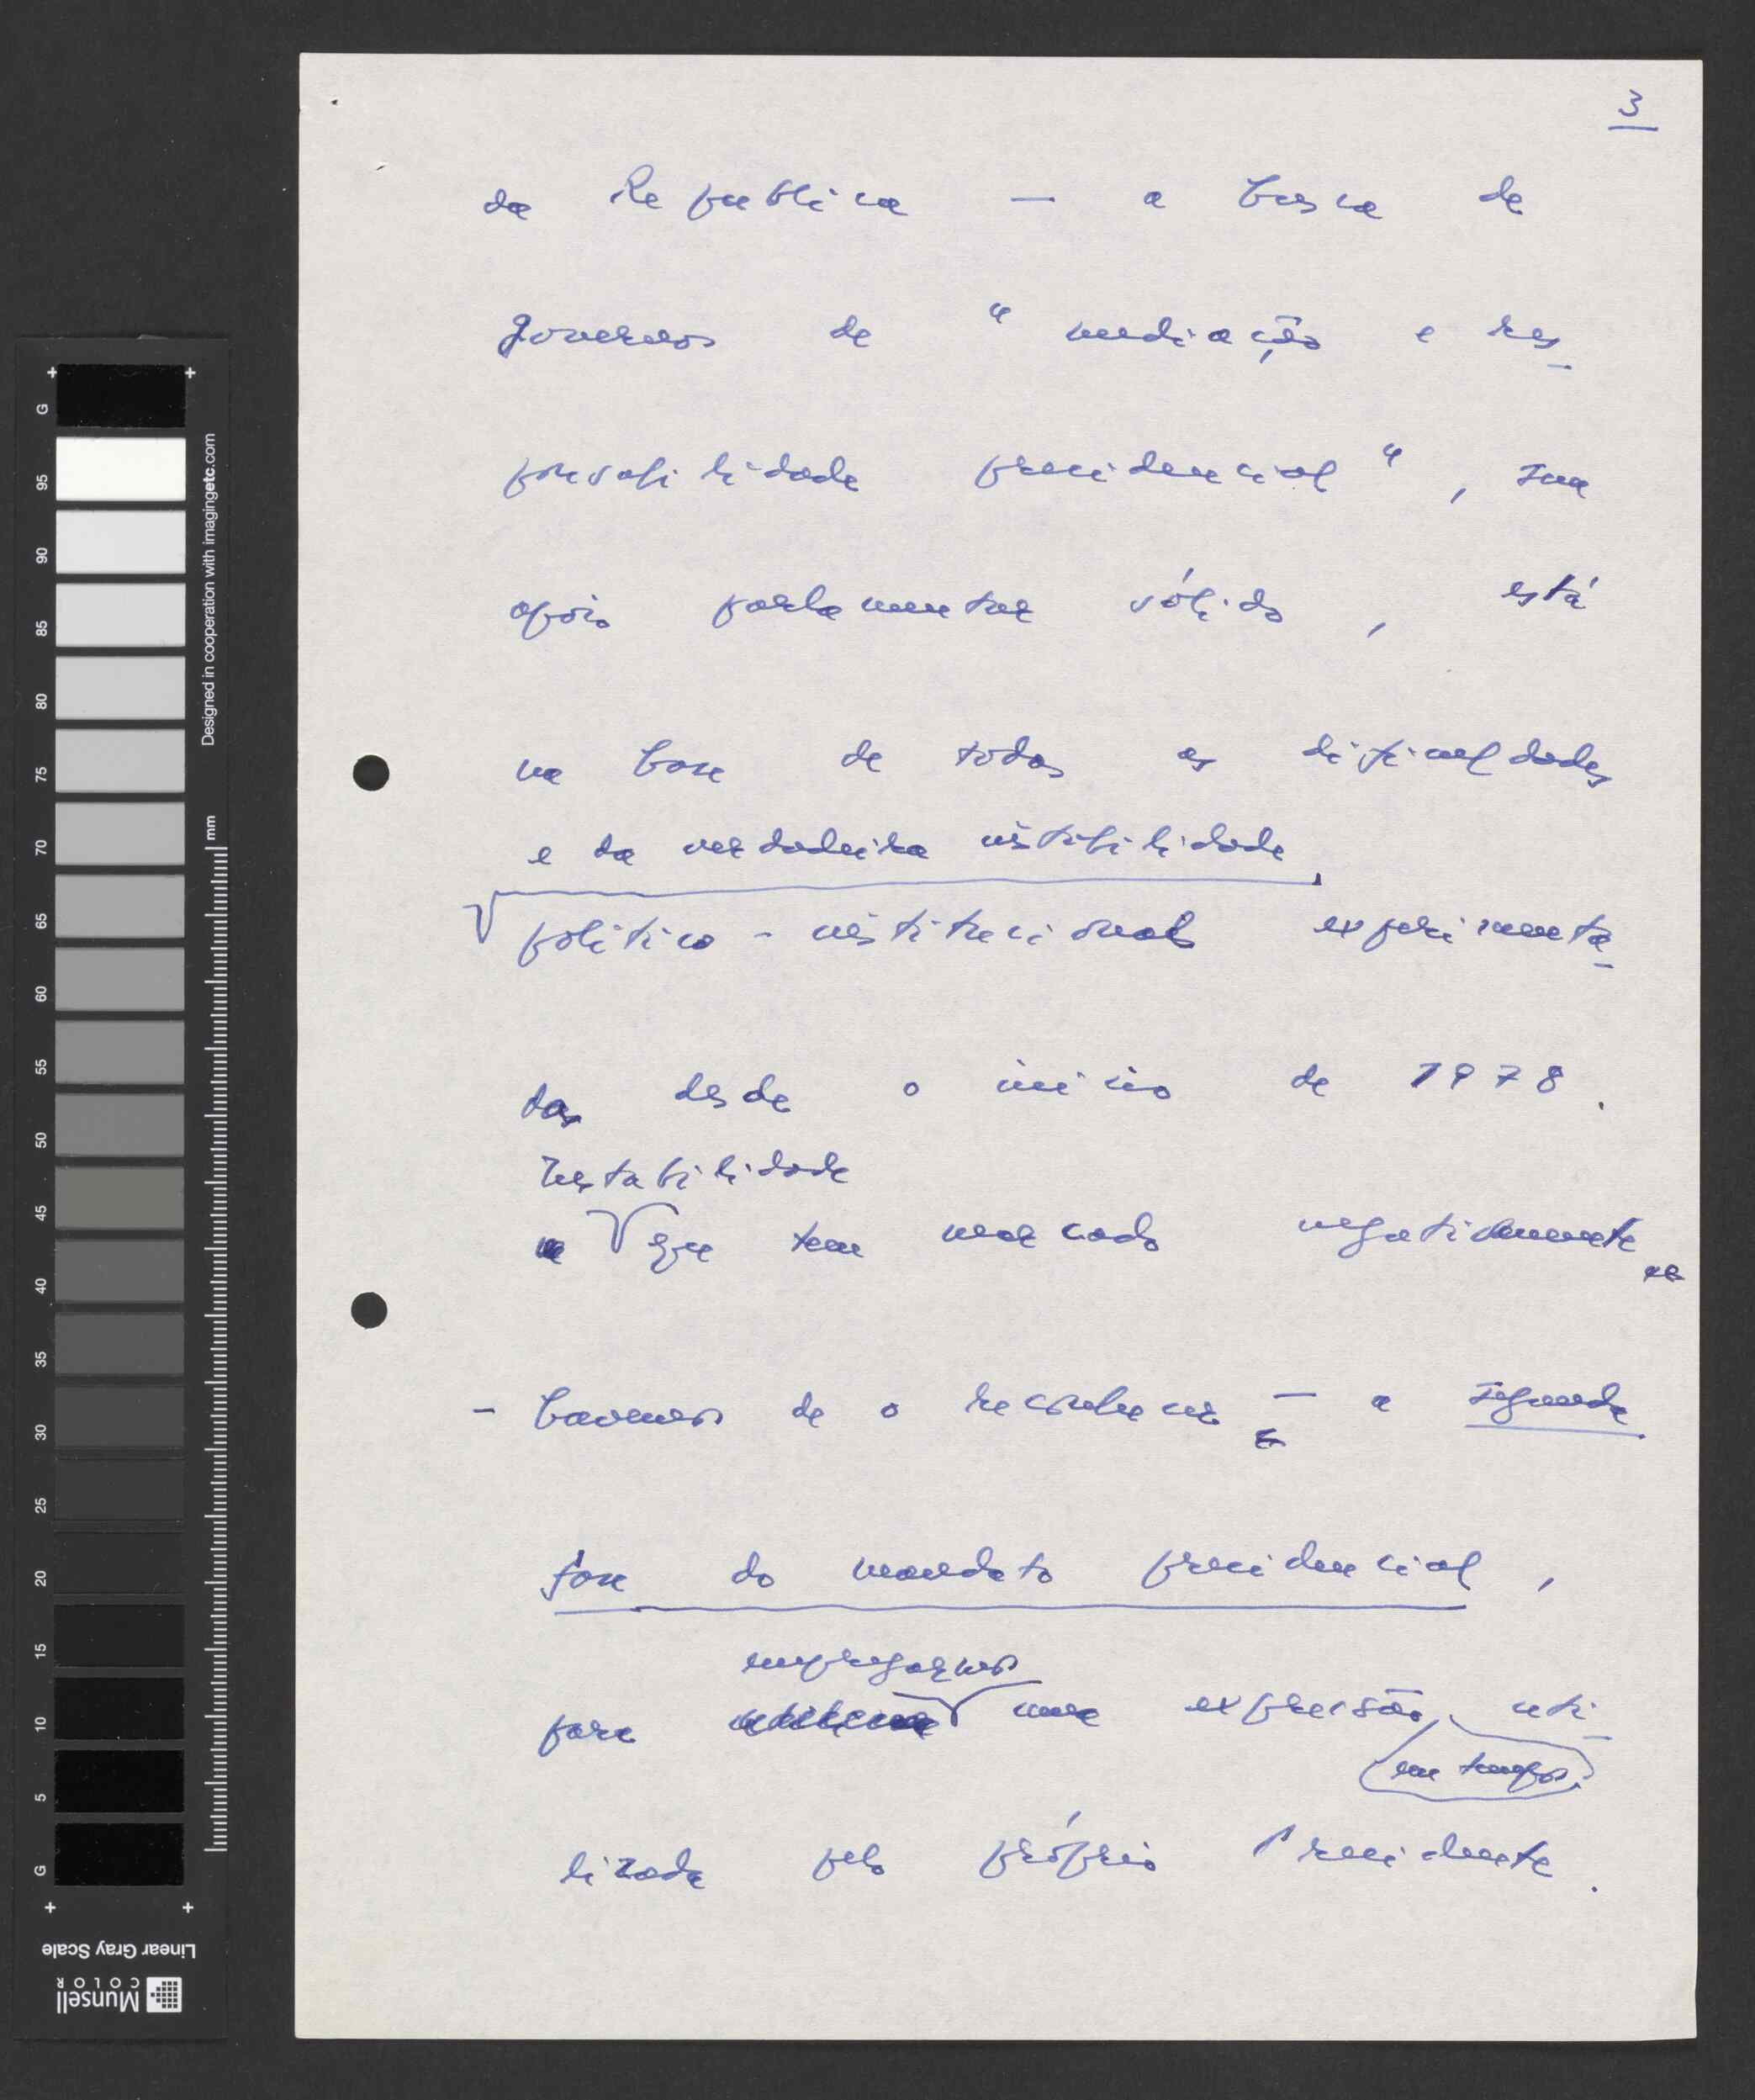 3
da Republica — a busca de
governos de " mediação e res
ponsabilidade presidencial ", sem
apoio parlamentar sólido, está
na base de todas as dificuldades
e da verdadeira instabilidade
politico-institucional experimenta
das desde o inicio de 1978.
Instabilidade
que tem marcado negativamente
- Cavemos de o reconhecer — a segunda
fase do mandato presidencial,
empregarmos
para uma expressão uti
em tempos
lizada pelo próprio Presidente.
G
95
90
85
80
75
70
65
60
55
50
45
40
35
30
25
20
15
10
5
G
mm
Designed in cooperation with imagingetc.com
Linear Gray Scale
Munsell
COLOR